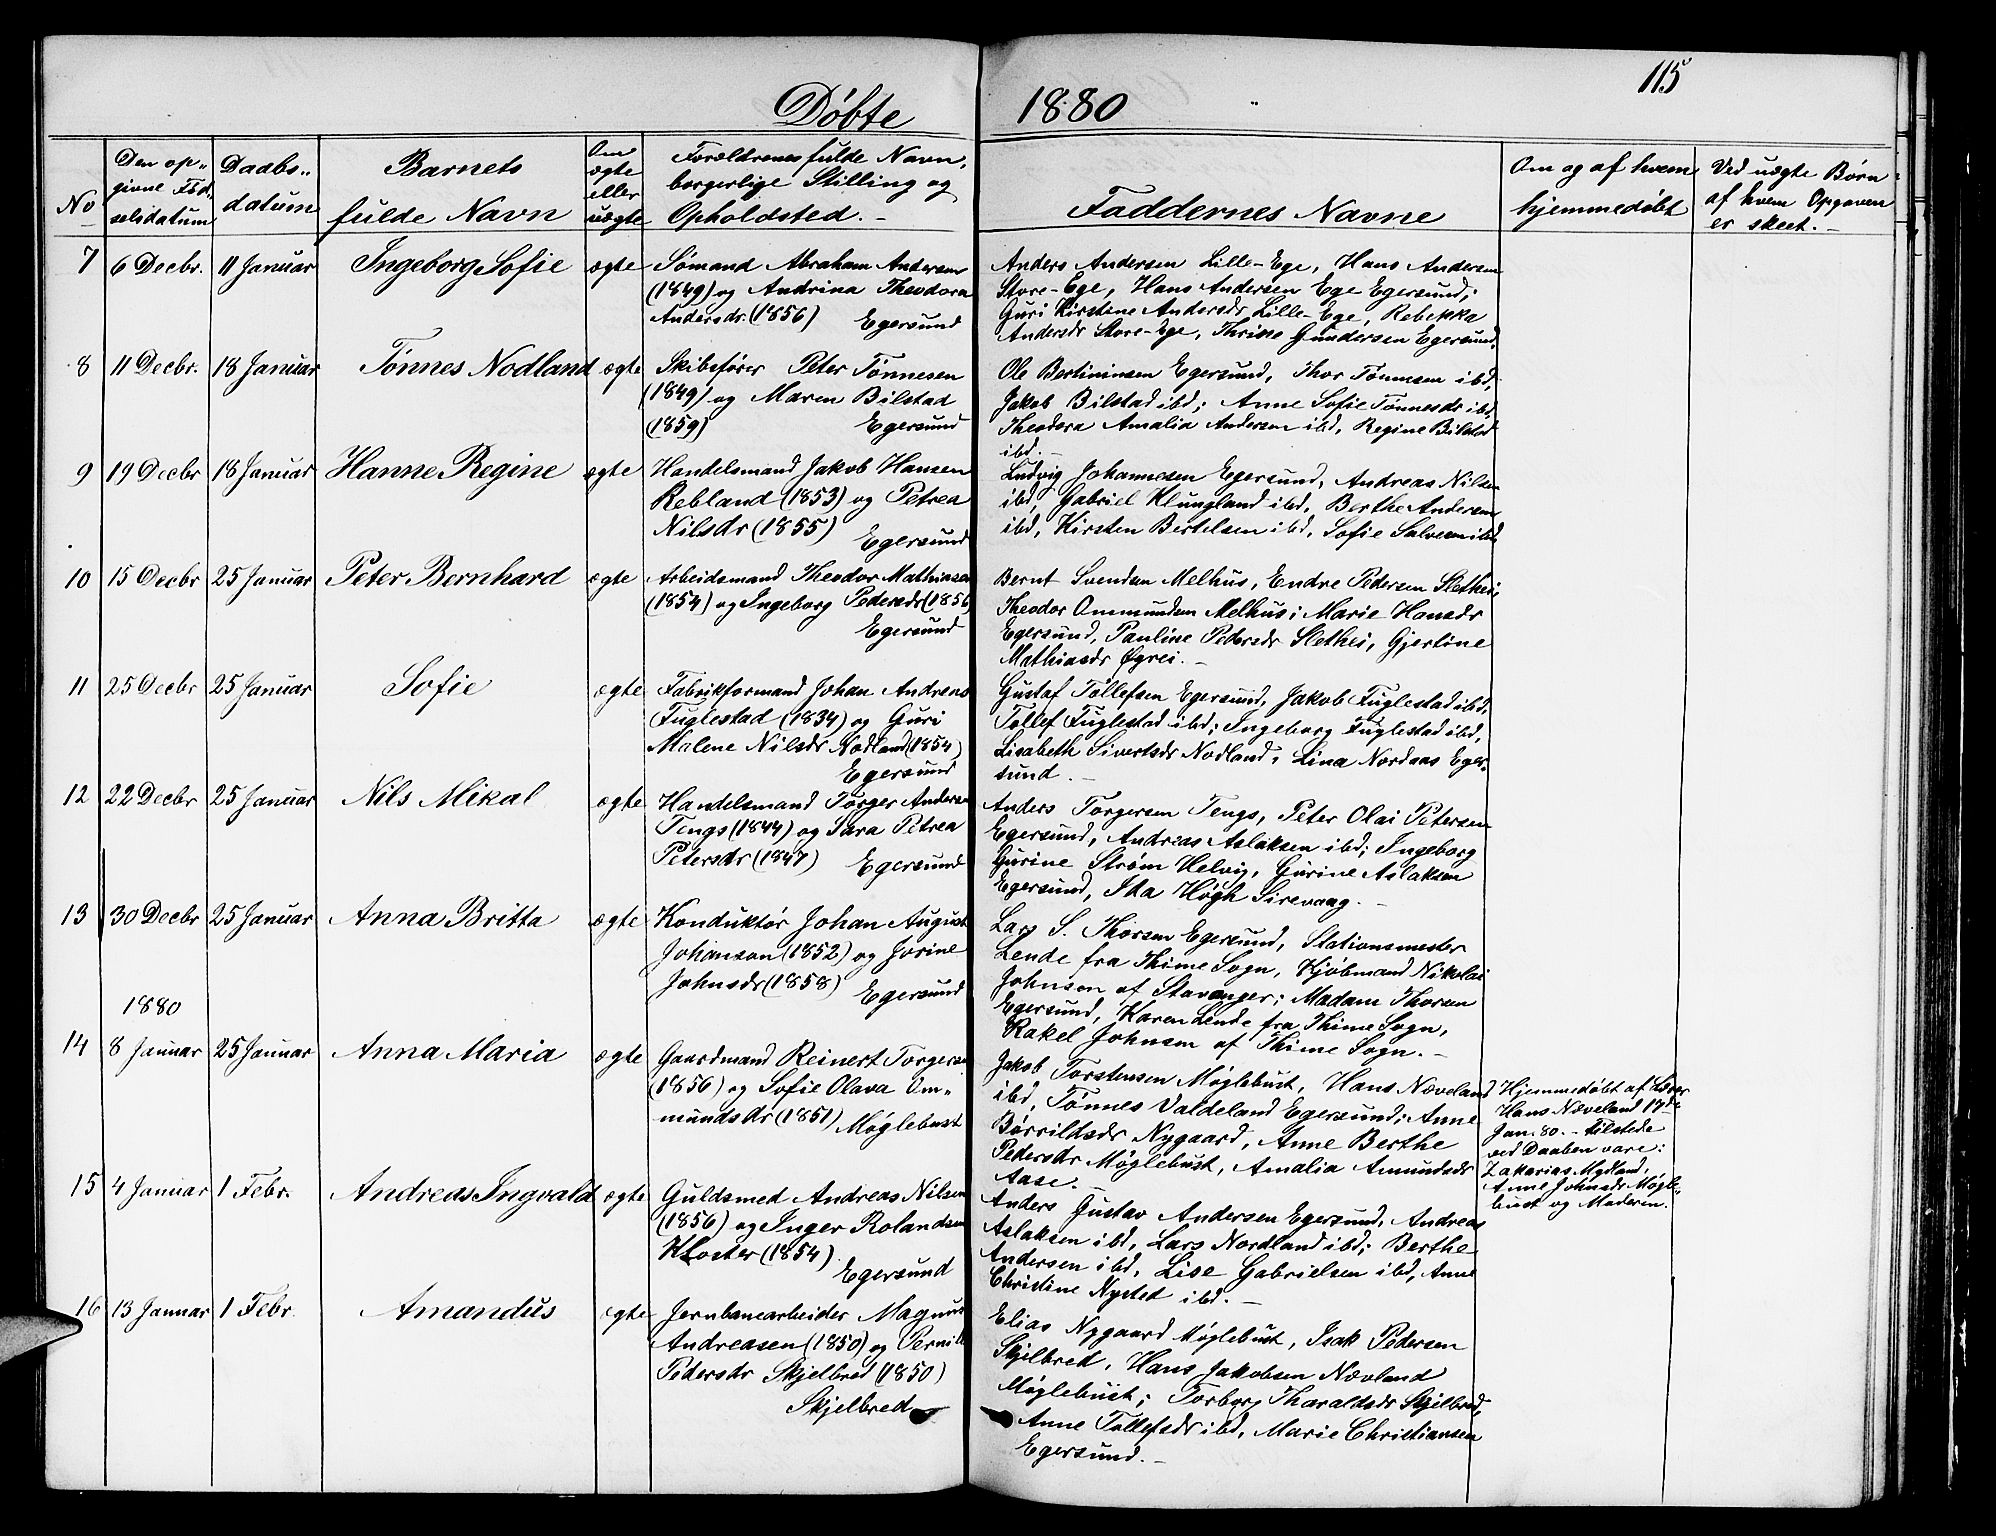 115
Døbte 1880
No
Den op-
givne Fød-
selsdatum
Daabs-
datum
Barnets
fulde Navn
Om
ægte
eller
uægte
Forældrenes fulde Navn,
borgerlige Stilling og
Opholdsted.
Faddernes Navne
Om og af hvem
hjemmedøbt
Ved uægte Børn
af hvem Opgaven
er skeet.
7 6 Decbr. 11 Januar Ingeborg Sofie ægte
Sømand Abraham Andersen
(1849) og Andrina Theodora
Andersdr. (1856) Egersund
Anders Andersen Lille-Ege, Hans Andersen
Store-Ege, Hans Andersen Ege Egersund;
Guri Kirstene Andersdr Lille-Ege, Rebekka
Andersdr Store-Ege, Thrine Gundersen Egersund.
8 11 Decbr. 18 Januar Tønnes Nodland ægte
Skibsfører Peter Tønnesen
(1849) og Maren Bilstad
(1859) Egersund
Ole Bertininsen Egersund, Thor Tønnesen ibd,
Jakob Bilstad ibd; Anne Sofie Tønnesdr ibd,
Theodora Amalia Andersen ibd, Regine Bilstad
ibd.
9 19 Decbr 18 Januar Hanne Regine ægte
Handelsmand Jakob Hansen
Rebland (1853) og Petrea
Nilsdr (1855) Egersund
Ludvig Johannesen Egersund, Andreas Nilsen
ibd, Gabriel Klungland ibd, Berthe Andersen
ibd, Kirsten Bertelsen ibd, Sofie Salvesen ibd
10 15 Decbr 25 Januar Peter Bernhard ægte
Arbeidsmand Theodor Mathiasen
(1854) og Ingeborg Pedersdr (1856)
Egersund
Bernt Svendsen Melhus, Endre Pedersen Slethei,
Theodor Ommundsen Melhus; Marie Hansdr
Egersund, Pauline Pedersdr Slethei, Gjertine
Mathiasdr Øgrei.
11 25 Decbr 25 Januar Sofie ægte
Fabrikformand Johan Andreas
Fuglestad (1834) og Guri
Malene Nilsdr Nodland (1854)
Egersund
Gustaf Tollefsen Egersund, Jakob Fuglestad ibd,
Tollef Fuglestad ibd; Ingeborg Fuglestad ibd,
Lisabeth Sivertsdr Nodland, Lina Nordaas Eger-
sund.
12 22 Decbr 25 Januar Nils Mikal ægte
Handelsmand Torger Andersen
Tengs (1844) og Sara Petrea
Petersdr (1847) Egersund
Anders Torgersen Tengs, Peter Olai Petersen
Egersund, Andreas Aslaksen ibd; Ingeborg
Gurine Strøm Helvig, Gurine Aslaksen
Egersund, Ika Høgh Sirevaag.
13 30 Decbr 25 Januar Anna Britta ægte
Konduktør Johan August
Johanson (1852) og Jorine
Johnsdr (1858) Egersund
Lars S. Thorsen Egersund, Stationsmester
Lende fra Thime Sogn, Kjøbmand Nikolai
Johnsen af Stavanger; Madam Thorsen
Egersund, Karen Lende fra Thime Sogn,
Rakel Johnsen af Thime Sogn.
1880
14 8 Januar 25 Januar Anna Maria ægte
Gaardmand Reinert Torgersen
(1856) og Sofie Olava Om-
mundsdr (1851) Møglebust
Jakob Torstensen Møglebust, Hans Næveland
ibd, Tønnes Valdeland Egersund; Anne
Børrildsdr Nygaard, Anne Berthe
Pedersdr Møglebust, Amalia Amundsdr
Aase.
Hjemmedøbt af Lærer
Hans Næveland 17de
Jan. 80. - tilstede
ved Daaben vare:
Zakarias Mydland,
Anne Johnsdr Møgle-
bust og Moderen.
15 4 Januar 1 Febr. Andreas Ingvald ægte
Guldsmed Andreas Nilsen
(1856) og Inger Rolandsen
Kloster (1854)
Egersund
Anders Gustav Andersen Egersund, Andreas
Aslaksen ibd, Lars Nordland ibd; Berthe
Andersen ibd, Lise Gabrielsen ibd, Anne
Christine Nysted ibd.
16 13 Januar 1 Febr. Amandus ægte
Jernbanearbeider Magnus
Andreasen (1850) og Pernille
Pedersdr Skjelbred (1850)
Skjelbred
Elias Nygaard Møglebust, Isak Pedersen
Skjelbred, Hans Jakobsen Nævland
Møglebust; Torborg Tharaldsdr Skjelbred,
Anne Tollefsdr ibd, Marie Christiansen
Egersund.